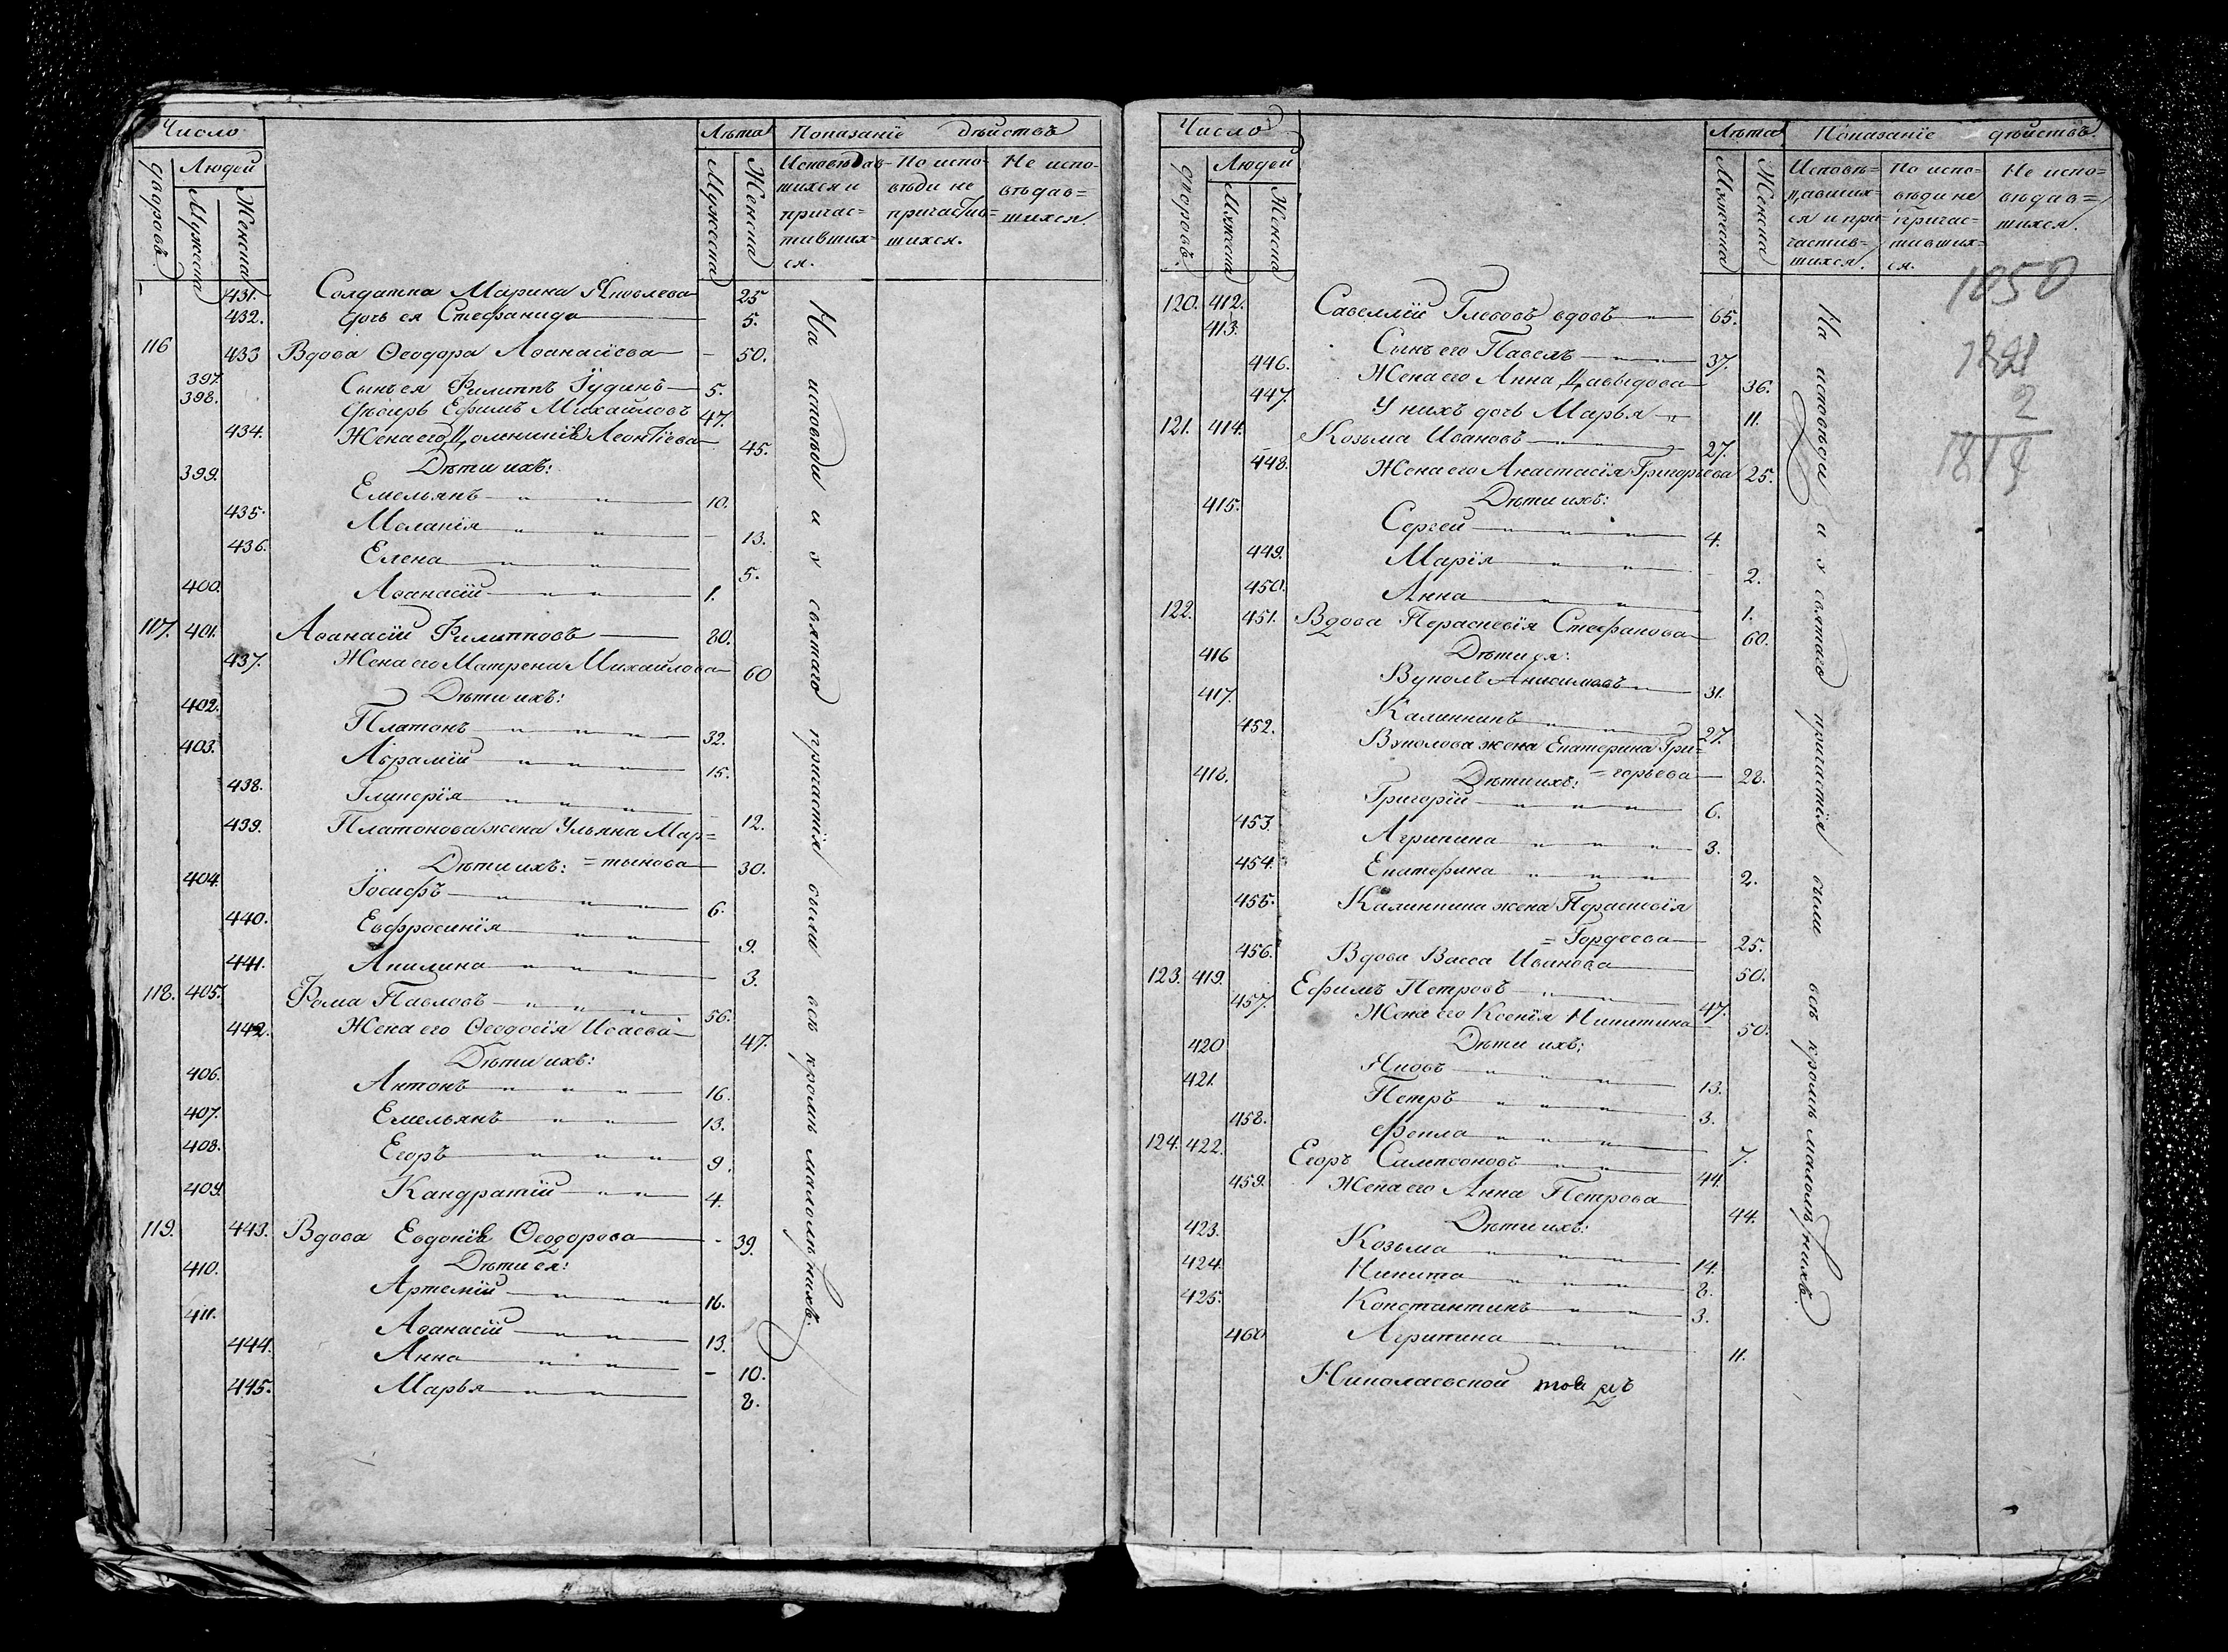 Число
Лѣта Показаніе дѣйствъ
дворовъ. Людей
Мужеска Женска
Мужеска Женска
Исповѣдав-
шихся и
причас-
тивших-
ся.
По испо-
вѣди не
причастив=
шихся.
Не испо-
вѣдав=
шихся.
431. Солдатка Марина Яковлева 25
432. Дочь ея Стефанида 5.
116 433 Вдова Ѳеодора Аѳанасіева - 50.
397. Сынъ ея Филиппъ Іудинъ 5.
398. Дѣверь Ефимъ Михайловъ 47.
434. Жена его Домникія Леонтіева 45.
Дѣти ихъ:
399. Емельянъ 10.
435. Меланія - 13.
436. Елена 5.
400. Аѳанасій 1.
117. 401. Аѳанасій Филипповъ 80.
437. Жена его Матрена Михайлова 60
Дѣти ихъ:
402. Платонъ 32.
403. Авраамій 15.
438. Гликерія - 12.
439. Платонова жена Ульяна Мар=
Дѣти ихъ: =тынова 30.
404. Іосифъ 6.
440. Евфросинія 9.
441. Акилина 3.
118. 405. Фома Павловъ 56.
442. Жена его Ѳеодосія Исаева 47.
Дѣти ихъ:
406. Антонъ 16.
407. Емельянъ 13.
408. Егоръ 9.
409. Кандратій 4.
119. 443. Вдова Евдокія Ѳеодорова - 39.
Дѣти ея:
410. Артемій 16.
411. Аѳанасій 13.
444. Анна - 10.
445. Марья 8.
На исповѣди и у святаго причастія были всѣ кромѣ малолѣтнихъ.
Число
Лѣта Показаніе дѣйствъ.
дворовъ. Людей
Мужеска Женска
Мужеска Женска
Исповѣ=
давших-
ся и при
частив=
шихся.
По испо-
вѣди не
причас=
тивших=
ся.
Не испо=
вѣдав=
шихся.
1850
2
120. 412. Савеллій Глебовъ вдовъ 65.
413. Сынъ его Павелъ 37.
446. Жена его Анна Давыдова 36.
447. У нихъ дочь Марья 11.
121. 414. Козьма Ивановъ 27.
448. Жена его Анастасія Григорьева 25.
Дѣти ихъ:
415. Сергей 4.
449. Марія 2.
450. Анна 1.
122. 451. Вдова Параскевія Стефанова 60.
Дѣти ея:
416 Вуколъ Анисимовъ 31.
417. Калинникъ 27.
452. Вуколова жена Екатерина Гри=
Дѣти ихъ: =горьева 28.
418. Григорій 6.
453. Агрипина 3.
454. Екатерина 2.
455. Калинника жена Параскевія
=Гордеева 25.
456. Вдова Васса Иванова 50.
123. 419. Ефимъ Петровъ 47.
457. Жена его Ксенія Никитина 50.
Дѣти ихъ:
420 Яковъ 13.
421. Петръ 3.
458. Фекла 7.
124. 422. Егоръ Сампсоновъ 44.
459. Жена его Анна Петрова 44.
Дѣти ихъ:
423. Козьма 14.
424. Никита 8.
425. Константинъ 3.
460 Агрипина 11.
Николаевской
На исповѣди и у святаго причастія были всѣ кромѣ малолѣтнихъ.